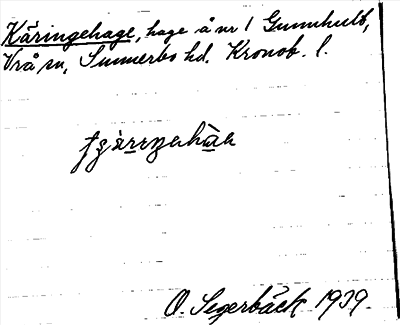 Käringehage, hage å nr 1 Gunnhult,
Vrå sn, Sunnerbo hd. Kronob. l.
O. Segerbäck 1939.